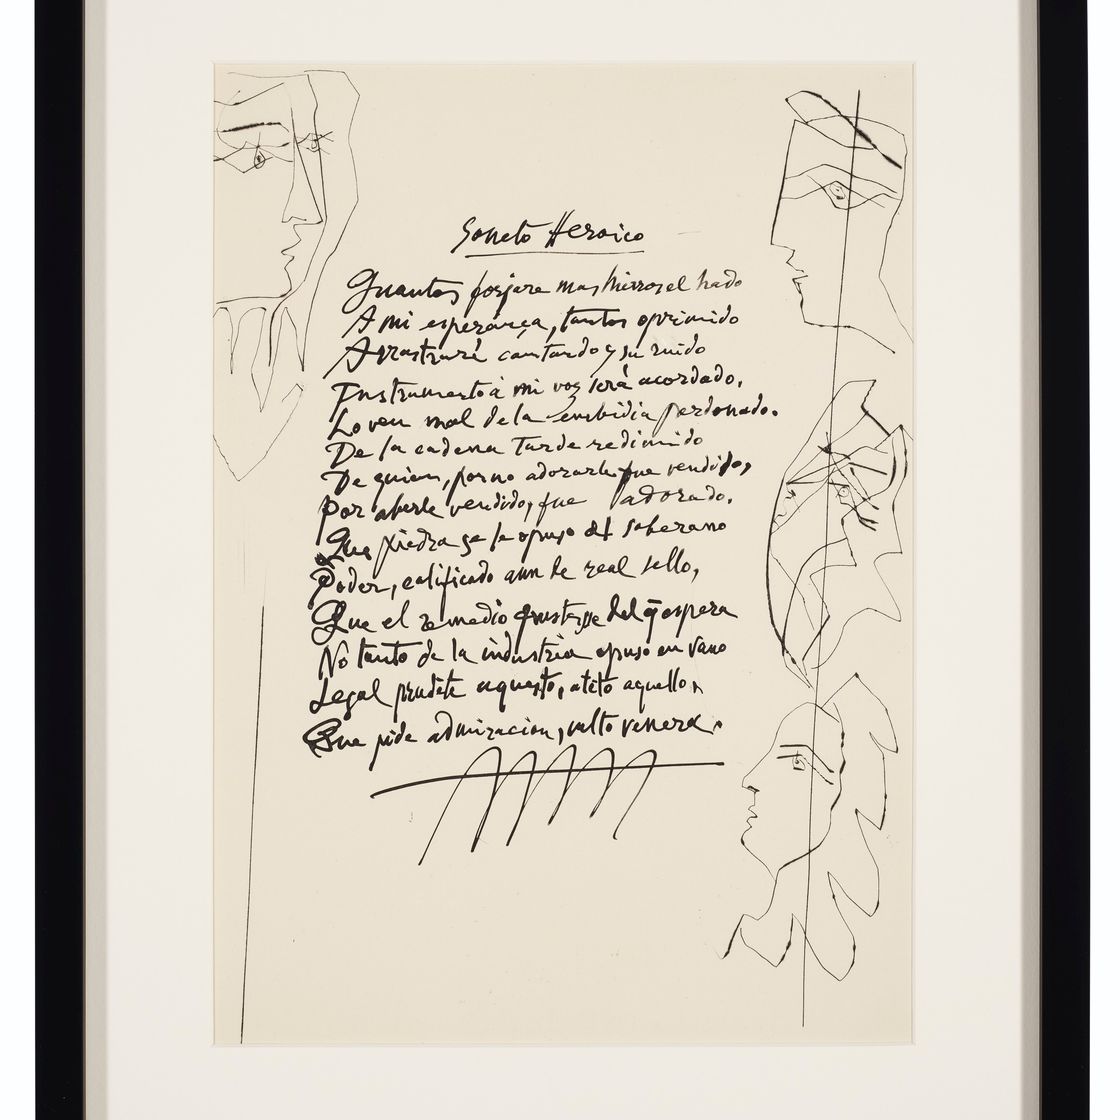 Soneto Heroico
Quantos forjare mas hierros el hado
A mi esperança, tantos oprimido
Arrastraré cantando, y su ruido
Instrumento á mi voz será acordado.
Joven mal de la embidia perdonado.
De la cadena tarde redimido
De quien, por no adorarle fue vendido,
Por aberle vendido, fue adorado.
Que piedra se le opuso al soberano
Poder, calificado aun de real sello,
Que el remedio frustasse del q̄ espera
No tanto de la industria opuso en vano
Legal aquesto, aquello,
Que pide admiracion, culto venera.